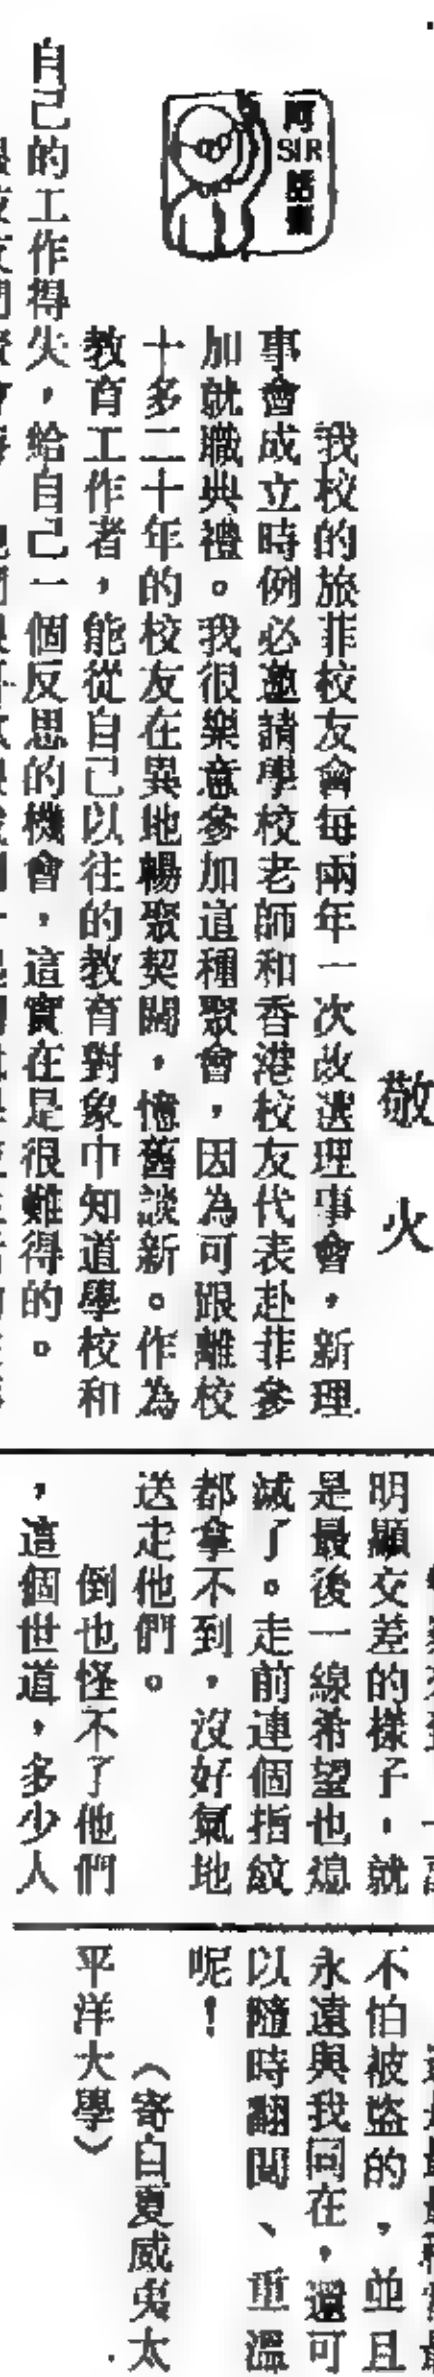 阿
SIR
話齋
敬火
我校的旅菲校友會每兩年一次改選理事會，新理
事會成立時例必邀請學校老師和香港校友代表赴菲參
加就職典禮。我很樂意參加這種聚會，因為可跟離校
十多二十年的校友在異地暢聚契闊，憶舊談新。作為
教育工作者，能從自己以往的教育對象中知道學校和
自己的工作得失，給自己一個反思的機會，這實在是很難得的。
明顯交差的樣子，就
是最後一線希望也熄
滅了。走前連個指紋
都拿不到，沒好氣地
送走他們。
倒也怪不了他們
，這個世道，多少人
不怕被盜的，並且
永遠與我同在，還可
以隨時翻閱、重溫
呢！
（寄自夏威夷太
平洋大學）